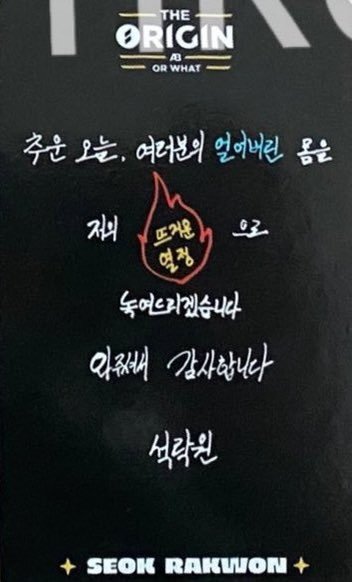 THE
ORIGIN
AB
OR WHAT
추운 오늘, 여러분의 얼어버린 몸을
저의 뜨거운 열정 으로
녹여드리겠습니다
와주셔서 감사합니다
석락원
SEOK RAKWON